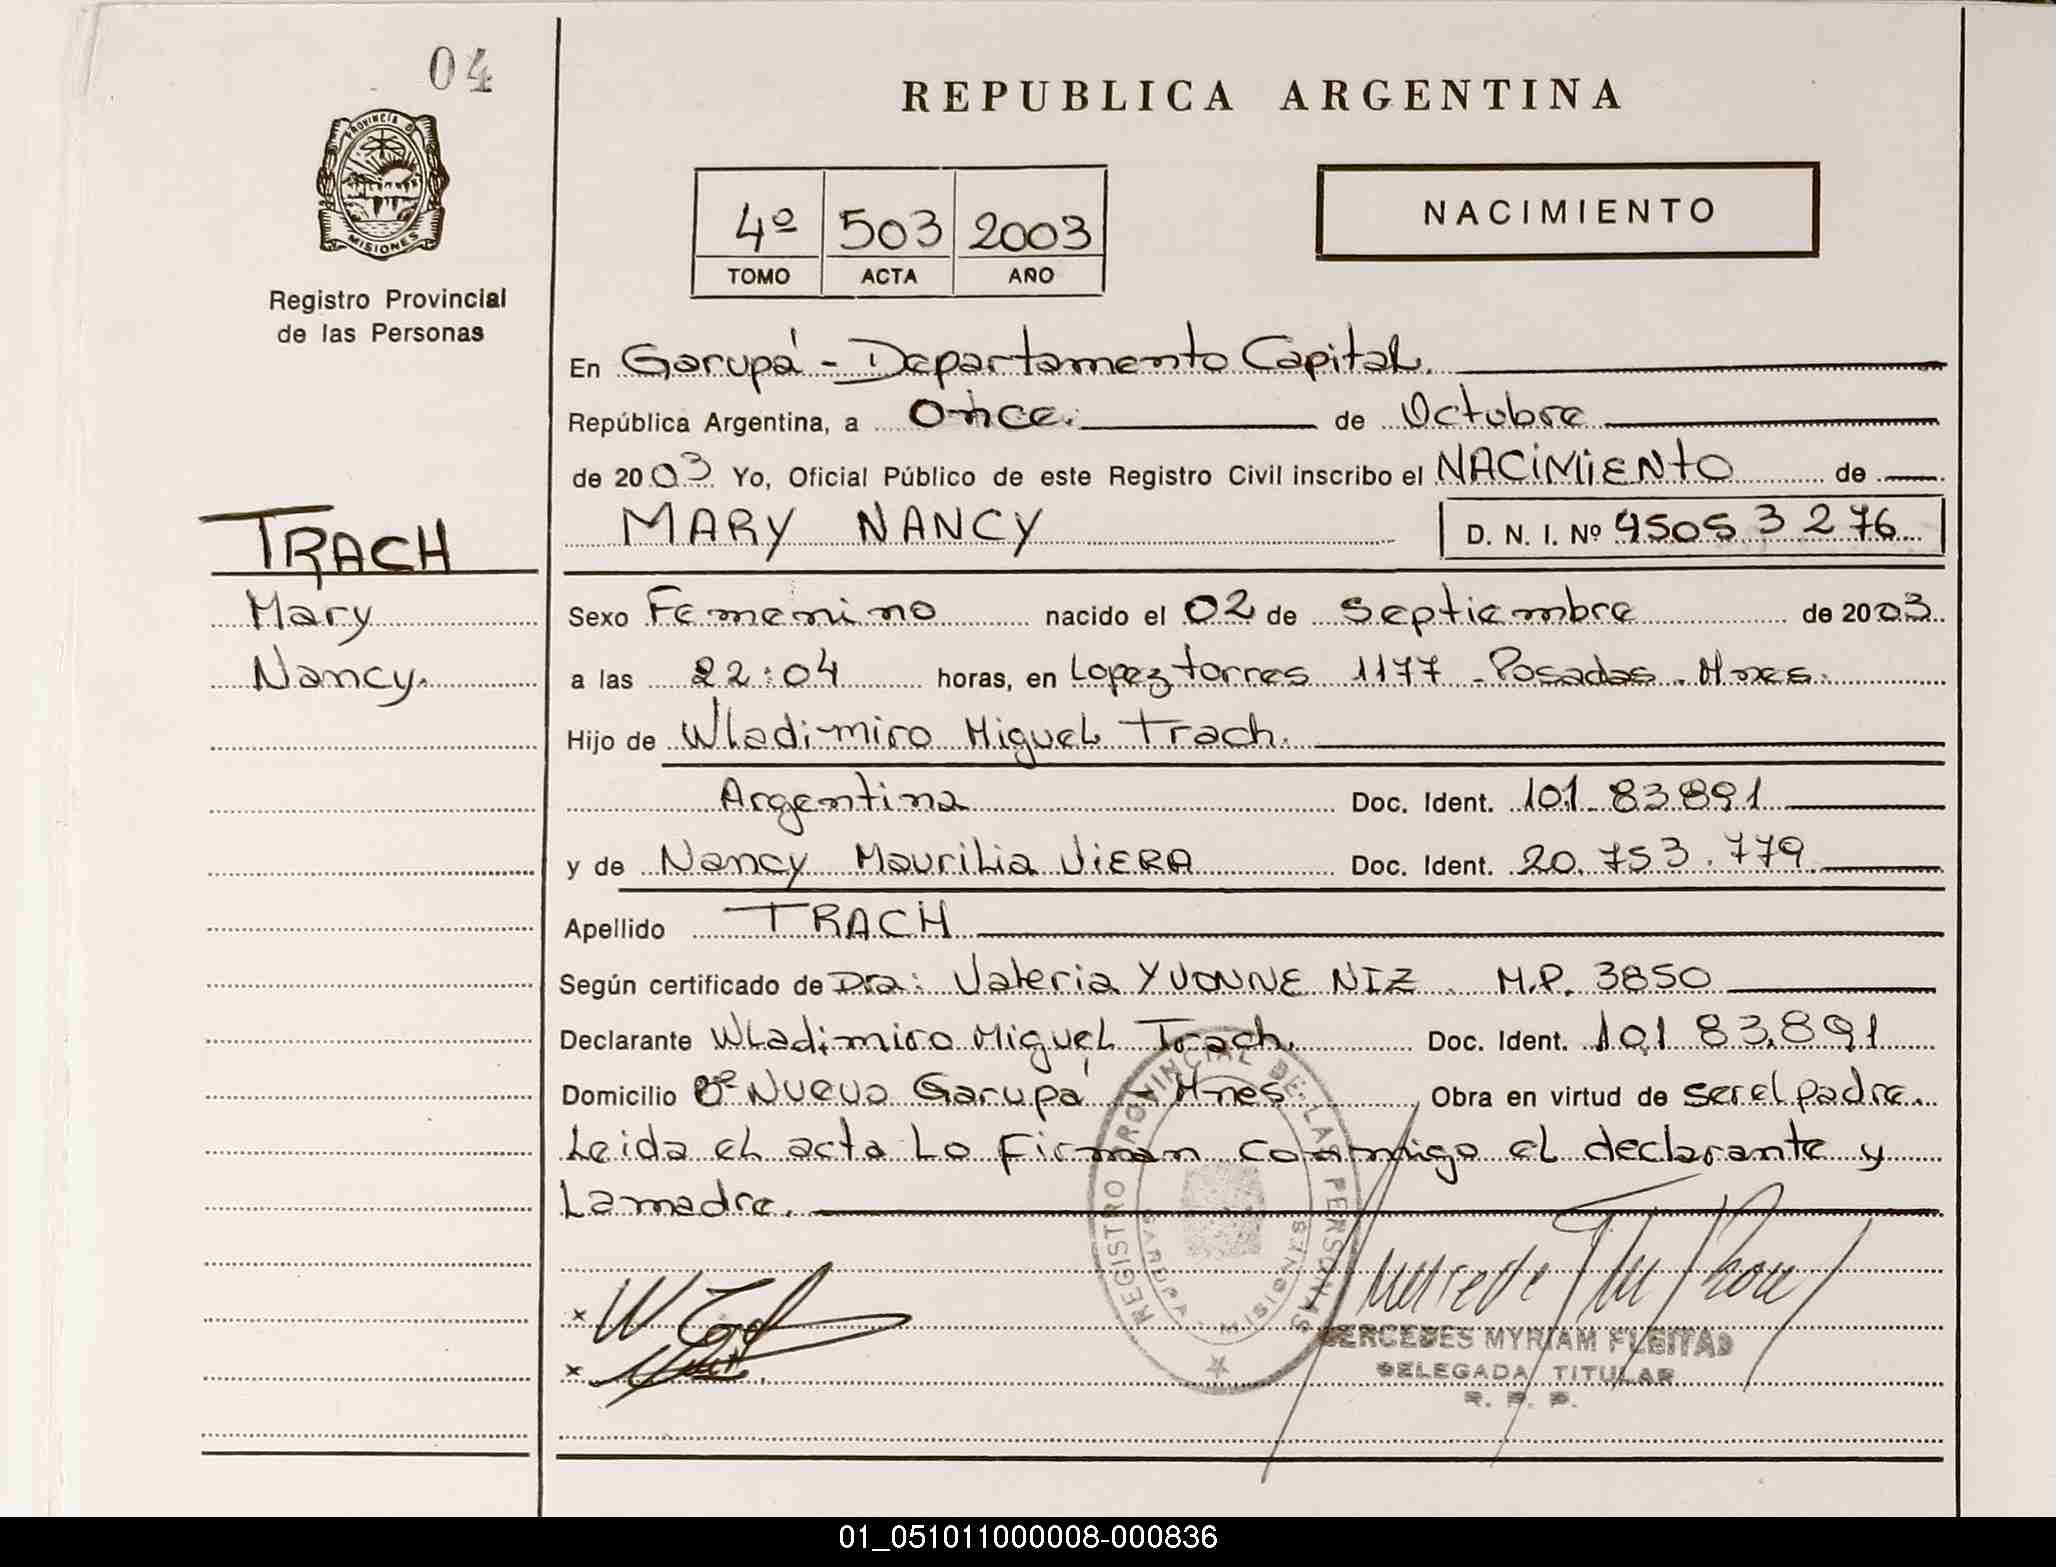 04
PROVINCIA D
MISIONES
Registro Provincial
de las Personas
REPUBLICA ARGENTINA
4º 503 2003
TOMO ACTA AÑO
NACIMIENTO
En Garupá - Departamento Capital.
República Argentina, a Once. de Octubre
de 2003 Yo, Oficial Público de este Registro Civil inscribo el NACIMIENTO de
MARY NANCY D. N. I. Nº 45053276
TRACH
Mary
Nancy.
Sexo Femenino nacido el 02 de Septiembre de 2003
a las 22:04 horas, en Lopez torres 1177 - Posadas - Mnes.
Hijo de Wladimiro Miguel Trach.
Argentina Doc. Ident. 101 83891
y de Nancy Maurilia VIERA Doc. Ident. 20.753.779
Apellido TRACH
Según certificado de Dra: Valeria YVONNE NIZ M.P. 3850
Declarante Wladimiro Miguel Trach. Doc. Ident. 10,1 83.891
Domicilio Bº Nuevo Garupá - Mnes Obra en virtud de ser el padre.
Leida el acta Lo Firman conmigo el declarante y
La madre.
REGISTRO PROVINCIAL DE LAS PERSONAS
GARUPA - MISIONES
x
x
MERCEDES MYRIAM FLEITAS
DELEGADA TITULAR
R. P. P.
01_051011000008-000836